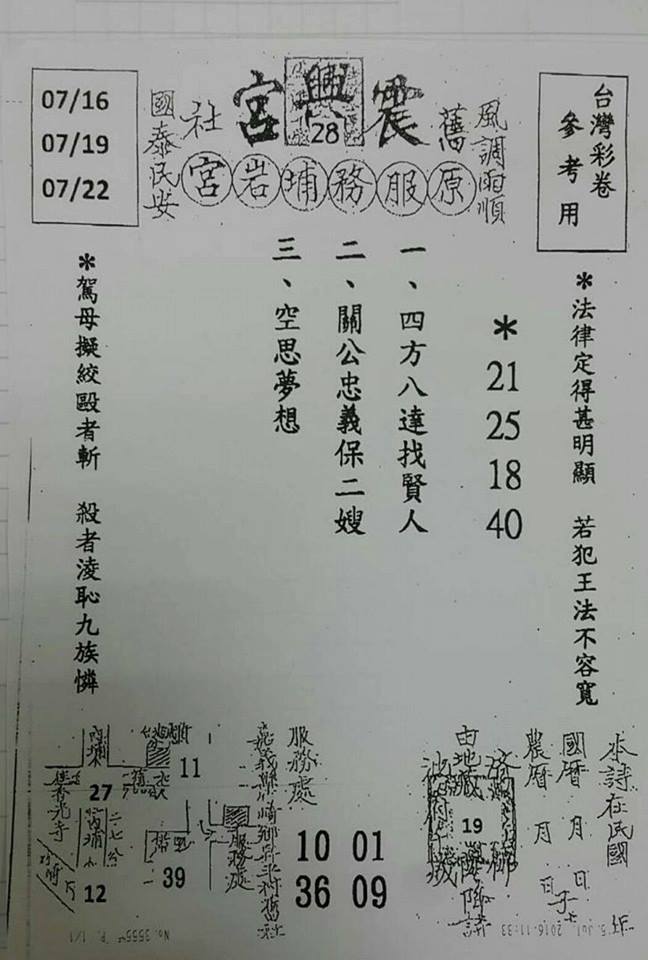 台灣彩卷
參考用
風調雨順
舊 震興宮 社
28
原服務埔岩宮
國泰民安
07/16
07/19
07/22
*法律定得甚明顯 若犯王法不容寬
*
21
25
18
40
一、四方八達找賢人
二、關公忠義保二嫂
三、空思夢想
*駕母擬絞毆者斬 殺者淩恥九族憐
本詩在民國 年
國曆 月 日
農曆 月 日
由地藏
19
服務處
10 01
36 09
服務處
11
27
39
12
5. Jul. 2016 11:33
No. 3555 P. 1/1